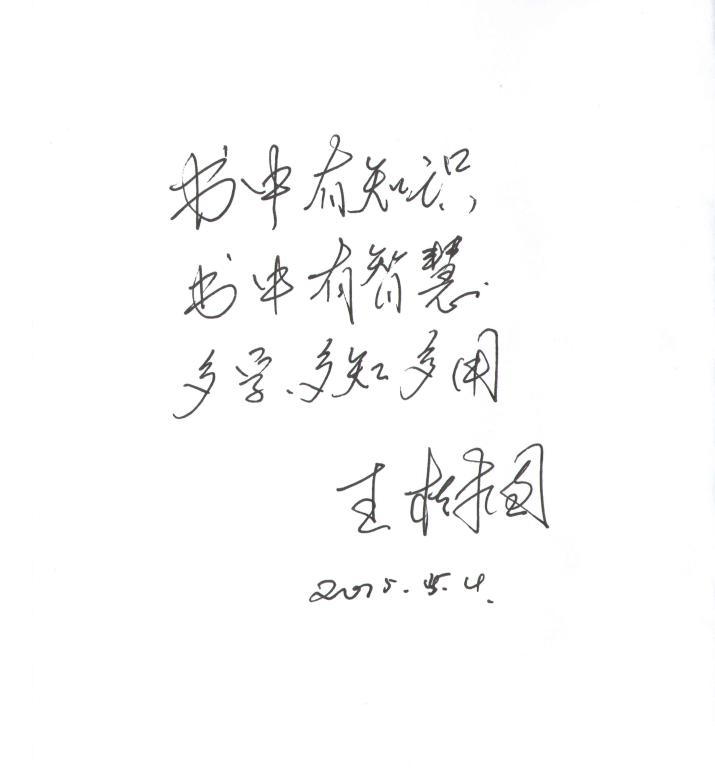 书中有知识，
书中有智慧.
多学、多知 多用
王树国
2015.5.4.